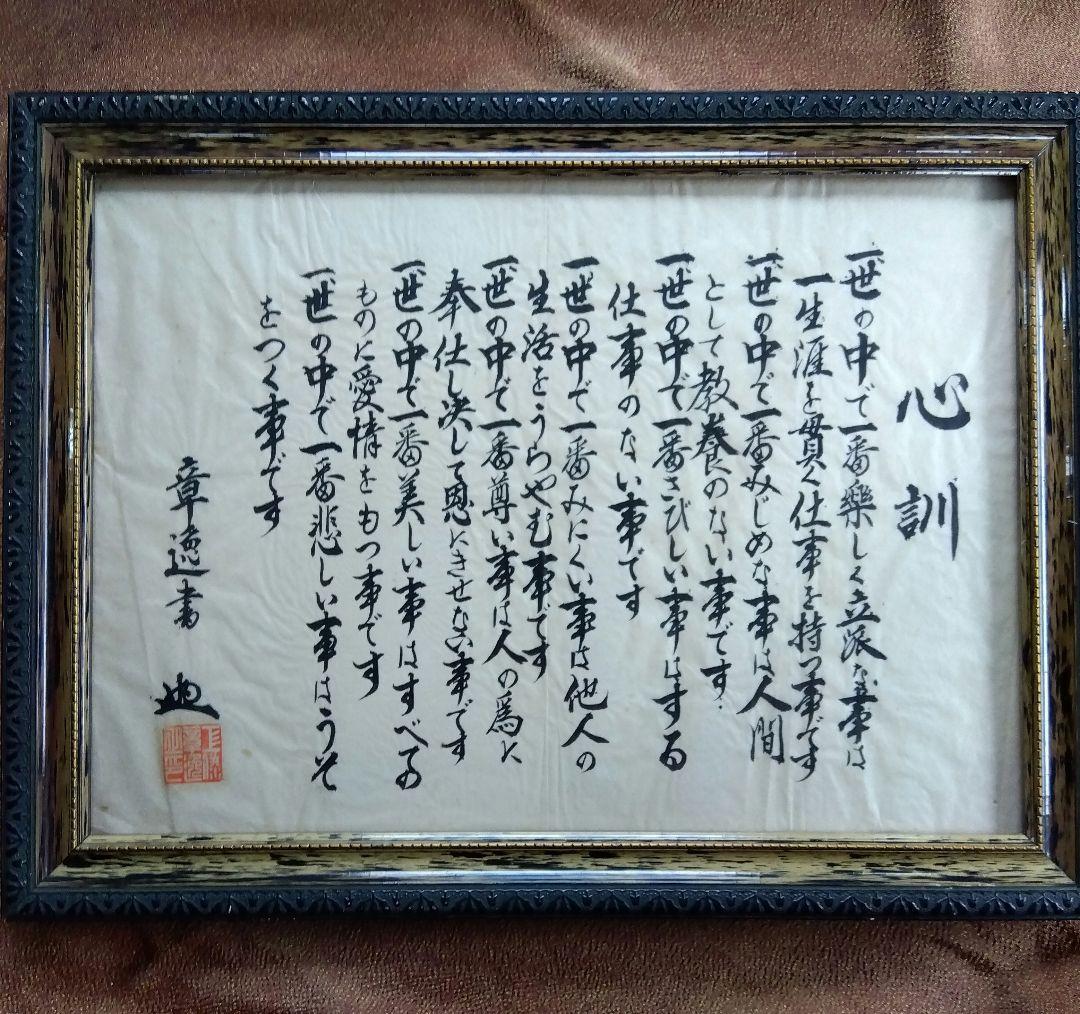 心訓
一世の中で一番樂しく立派な事は
一生涯を貫く仕事を持つ事です
一世の中で一番みじめな事は人間
として教養のない事です
一世の中で一番さびしい事はする
仕事のない事です
一世の中で一番みにくい事は他人の
生活をうらやむ事です
一世の中で一番尊い事は人の為に
奉仕し決して恩にきせない事です
一世の中で一番美しい事はすべての
ものに愛情をもつ事です
一世の中で一番悲しい事はうそ
をつく事です
章逸書